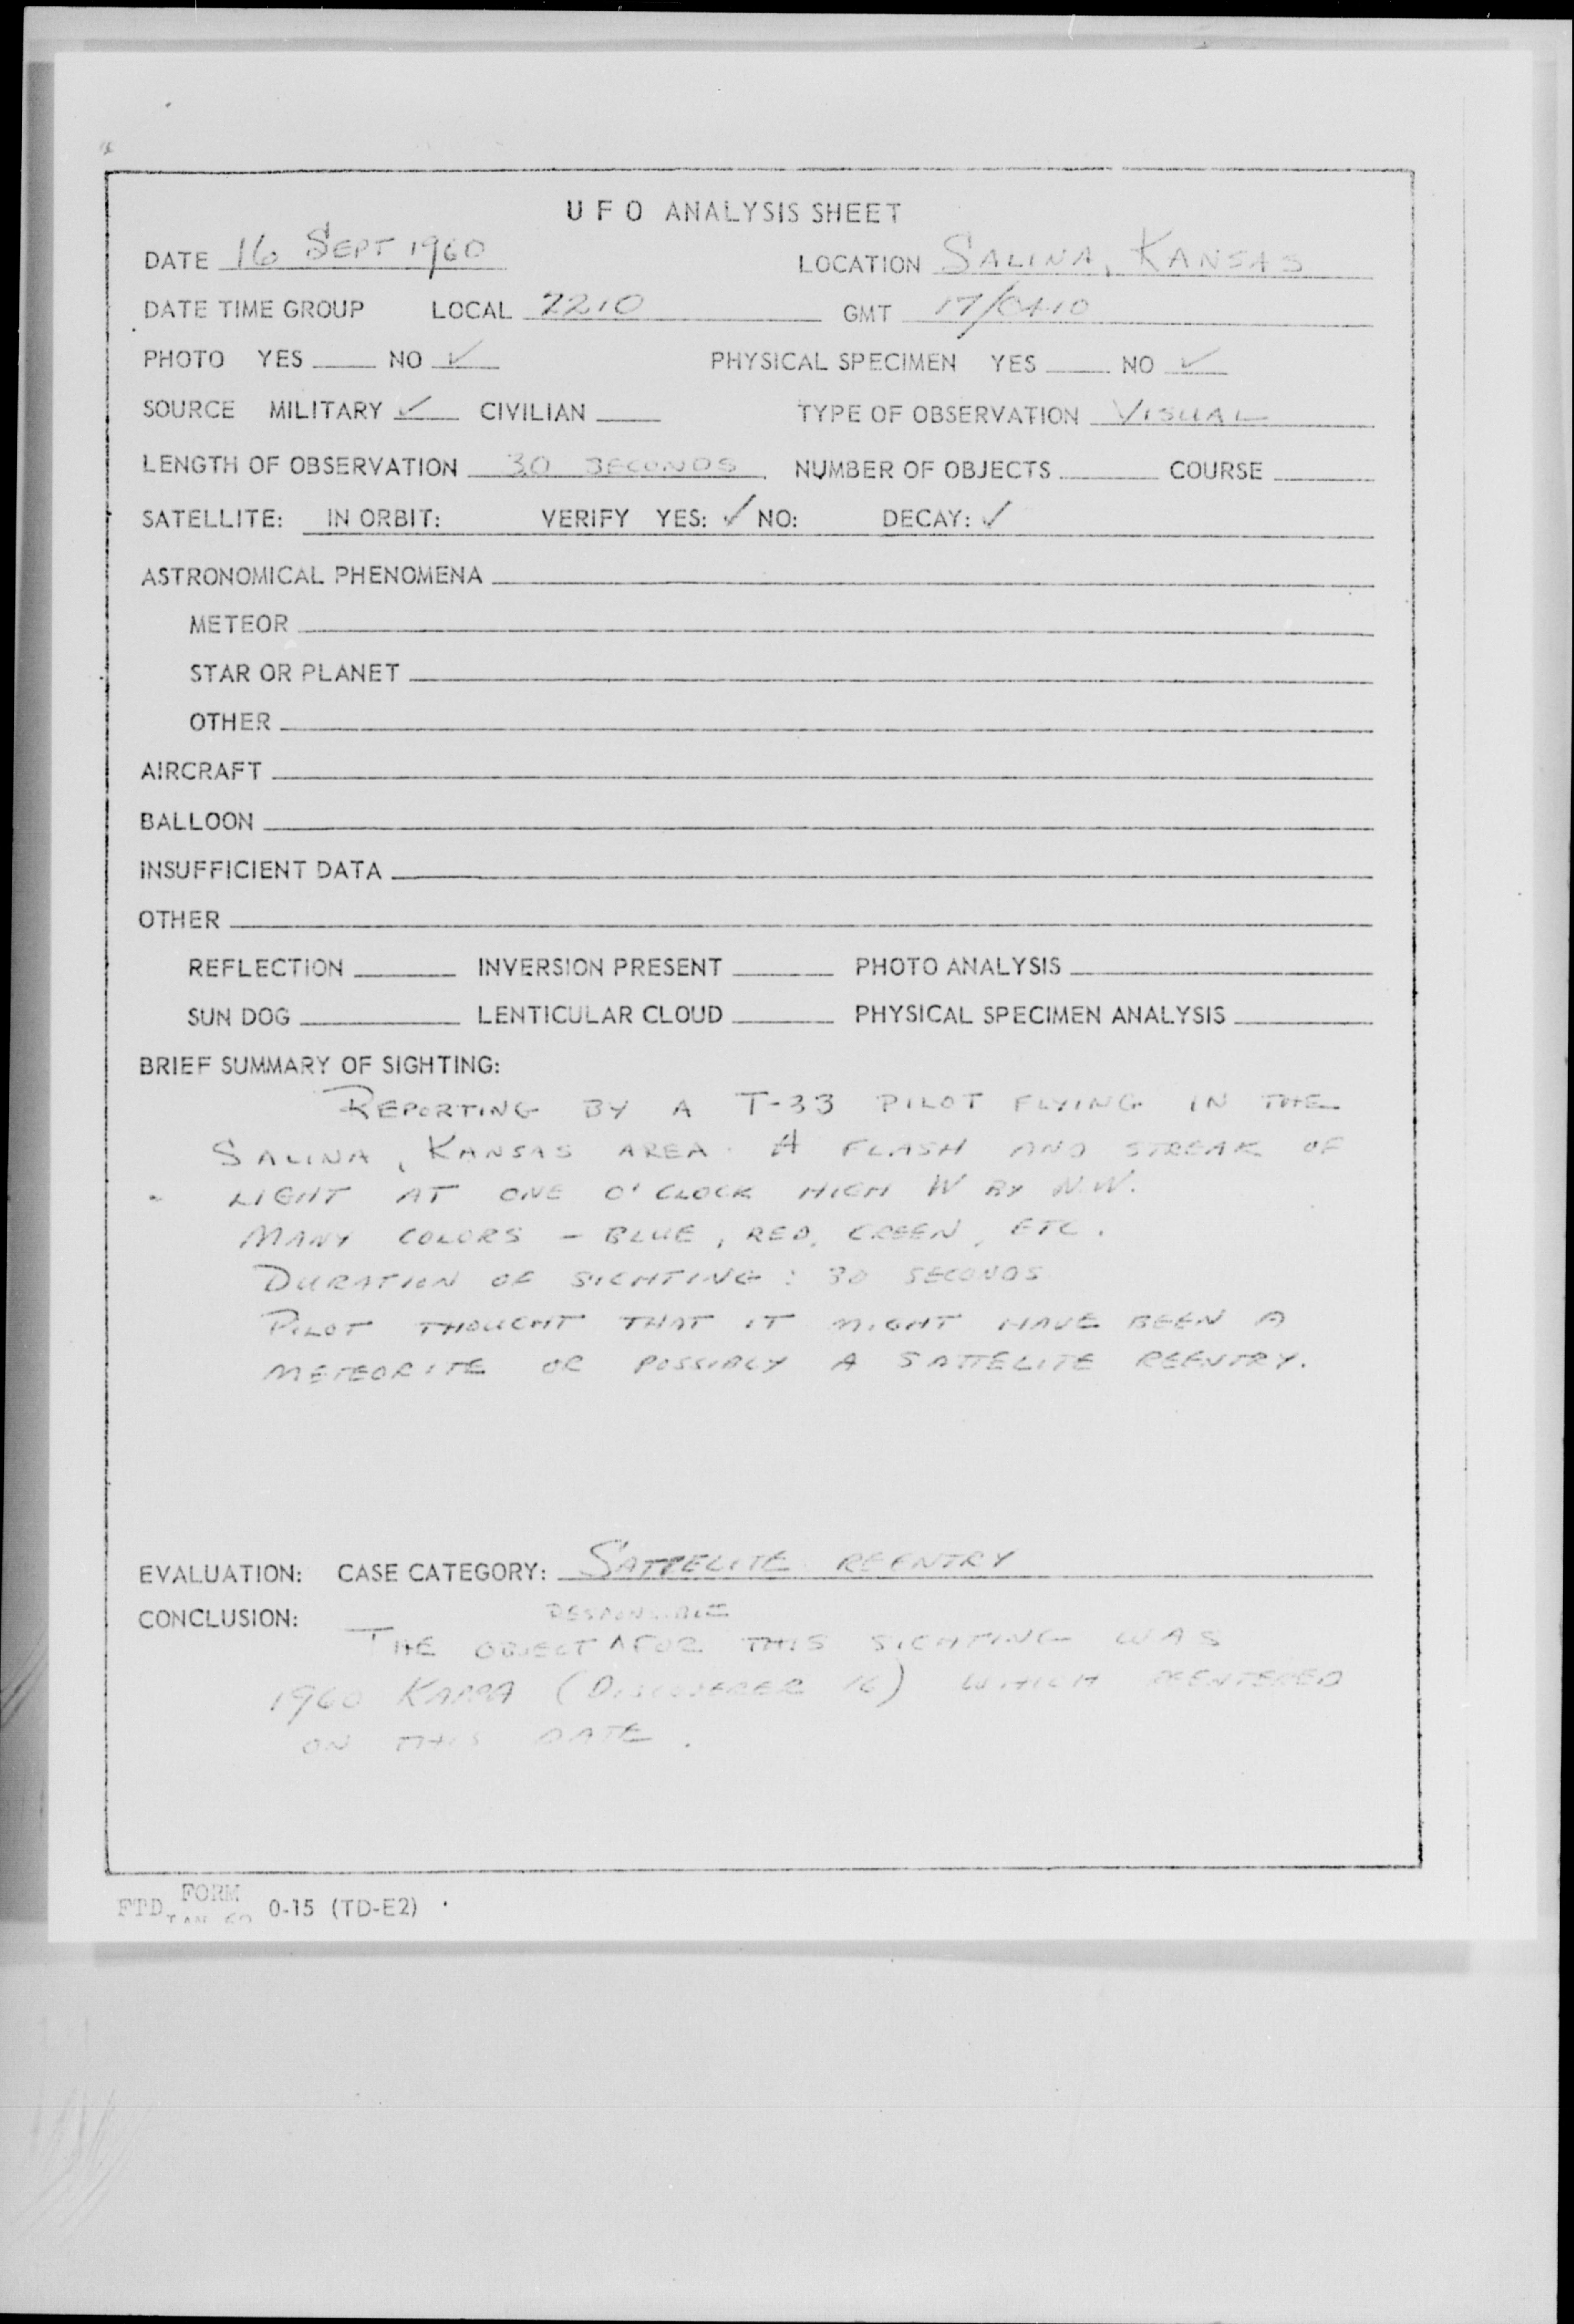 UFO ANALYSIS SHEET
DATE 16 SEPT 1960 LOCATION SALINA, KANSAS
DATE TIME GROUP LOCAL 2210 GMT 17/0410
PHOTO YES NO ✓ PHYSICAL SPECIMEN YES NO ✓
SOURCE MILITARY ✓ CIVILIAN TYPE OF OBSERVATION VISUAL
LENGTH OF OBSERVATION 30 SECONDS NUMBER OF OBJECTS COURSE
SATELLITE: IN ORBIT: VERIFY YES: ✓ NO: DECAY: ✓
ASTRONOMICAL PHENOMENA
METEOR
STAR OR PLANET
OTHER
AIRCRAFT
BALLOON
INSUFFICIENT DATA
OTHER
REFLECTION INVERSION PRESENT PHOTO ANALYSIS
SUN DOG LENTICULAR CLOUD PHYSICAL SPECIMEN ANALYSIS
BRIEF SUMMARY OF SIGHTING:
REPORTING BY A T-33 PILOT FLYING IN THE
SALINA, KANSAS AREA. A FLASH AND STREAK OF
LIGHT AT ONE O'CLOCK HIGH W BY N.W.
MANY COLORS - BLUE, RED, GREEN, ETC.
DURATION OF SIGHTING: 30 SECONDS
PILOT THOUGHT THAT IT MIGHT HAVE BEEN A
METEORITE OR POSSIBLY A SATTELITE REENTRY.
EVALUATION: CASE CATEGORY: SATTELITE REENTRY
CONCLUSION: RESPONSIBLE
THE OBJECT ^ FOR THIS SIGHTING WAS
1960 KAPPA (DISCOVERER 16) WHICH REENTERED
ON THIS DATE.
FTD FORM JAN 60 0-15 (TD-E2)